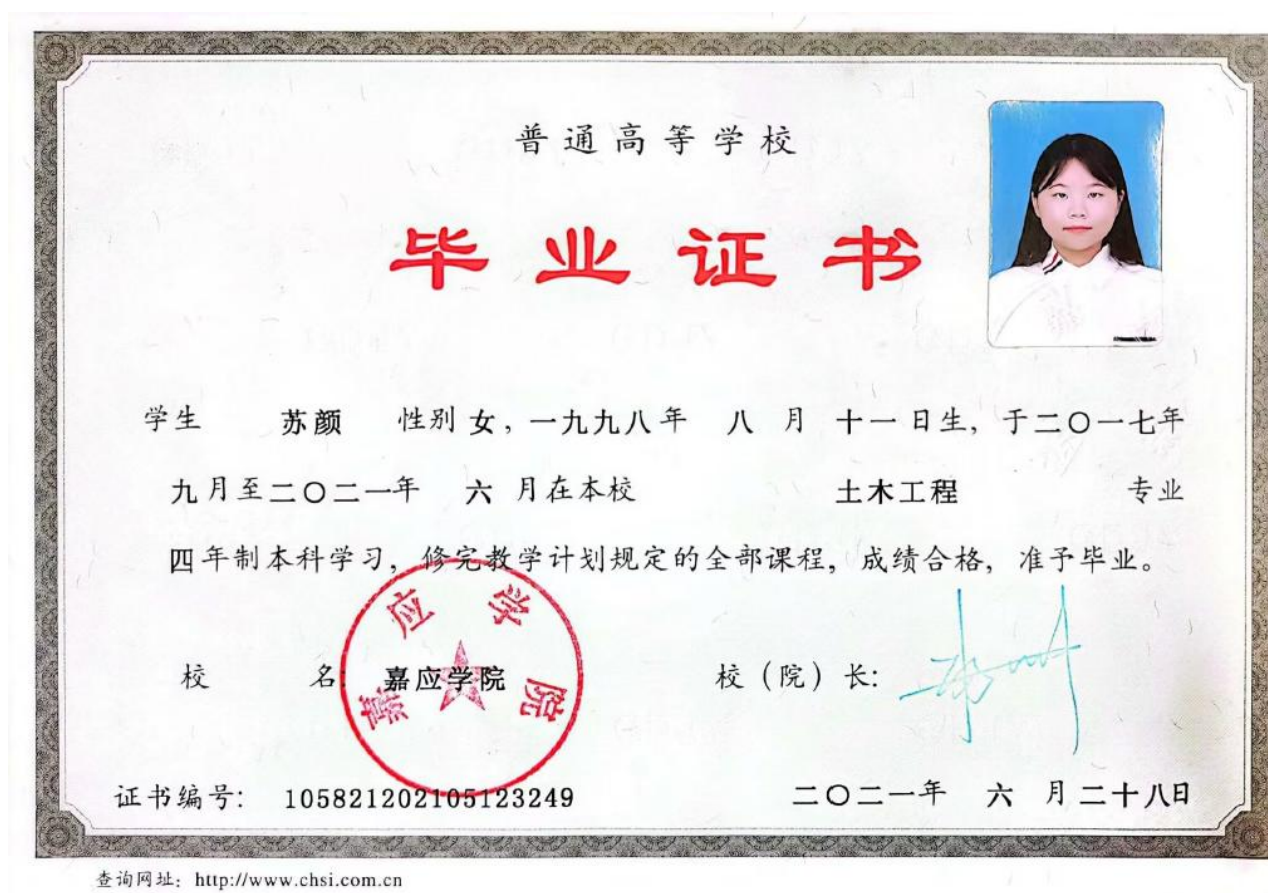 普通高等学校
毕业证书
学生 苏颜 性别 女，一九九八年 八 月 十一 日生，于二〇一七年
九月至二〇二一年 六 月在本校 土木工程 专业
四年制本科学习，修完教学计划规定的全部课程，成绩合格，准予毕业。
嘉应学院
校 名：嘉应学院 校（院）长：
证书编号： 105821202105123249 二〇二一年 六 月二十八日
查询网址：http://www.chsi.com.cn